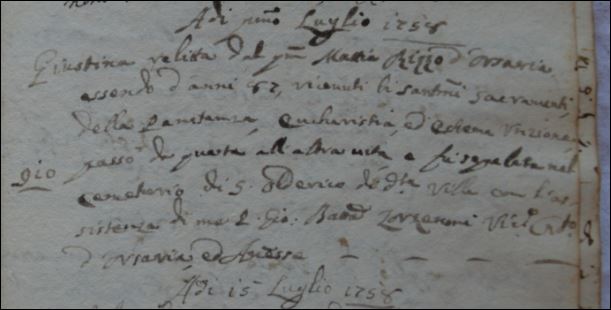 Adi primo Luglio 1758
Giustina relitta dal qm Mattia Rizzo d'Orsaria
essendo d'anni 62, ricevuti li santmi Sacramenti,
della Penitanza, eucharistia, ed'estrema Unzione,
passò da questa all'altra vita e fù sepolta nel
cemeterio di S. Olderico de da Villa con l'as-
sistenza di me P. Gio: Batta Zorzenoni Vico Crto
d'Orsaria, ed Anesse
Adi 15 Luglio 1758